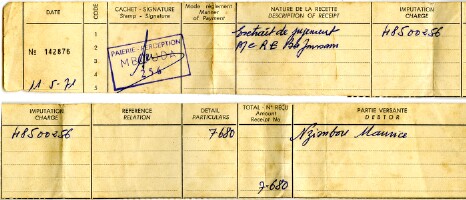 DATE
CODE
CACHET - SIGNATURE
Stamp - Signature
Mode règlement
Manner
of Payment
NATURE DE LA RECETTE
DESCRIPTION OF RECEIPT
IMPUTATION
CHARGE
1
2
3
4
5
№ 142876
11-5-71
PAIERIE-PERCEPTION
256
Extrait de jugement
48500256
IMPUTATION
CHARGE
REFERENCE
RELATION
DETAIL
PARTICULARS
TOTAL - Nº REÇU
Amount
Receipt No
PARTIE VERSANTE
DEBTOR
48500256
7680
Maurice
7-680